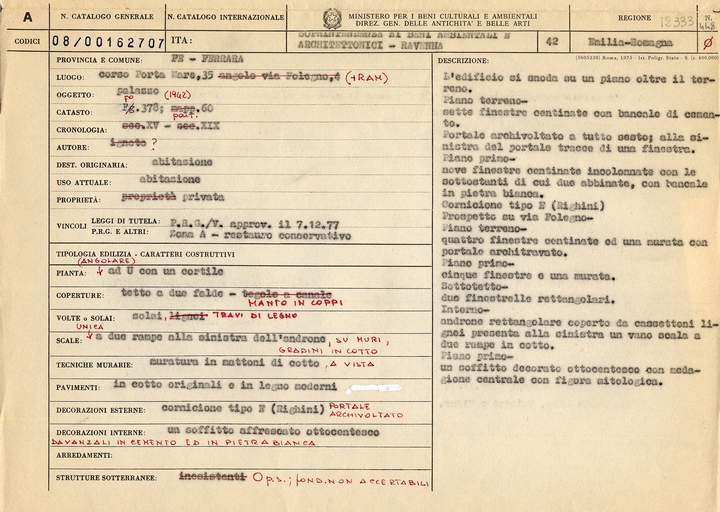 A
N. CATALOGO GENERALE
N. CATALOGO INTERNAZIONALE
MINISTERO PER I BENI CULTURALI E AMBIENTALI
DIREZ. GEN. DELLE ANTICHITA' E BELLE ARTI
REGIONE
12333
N.
CODICI
08/00162707
ITA:
SOPRINTENDENZA AI BENI AMBIENTALI E
ARCHITETTONICI - RAVENNA
42
Emilia-Romagna
(3603239) Roma, 1975 - Ist. Poligr. Stato - S. (c. 400.000)
PROVINCIA E COMUNE: FE - FERRARA
LUOGO: corso Porta Mare,35 angolo via Folegno,4 (+RAM)
OGGETTO: palazzo (1942)
CATASTO: Fg.378; mapp.60
fo part.
CRONOLOGIA: sec.XV - sec.XIX
AUTORE: ignoto ?
DEST. ORIGINARIA: abitazione
USO ATTUALE: abitazione
PROPRIETÀ: proprietà privata
VINCOLI
LEGGI DI TUTELA: P.R.G./V. approv. il 7.12.77
P.R.G. E ALTRI: Zona A - restauro conservativo
TIPOLOGIA EDILIZIA - CARATTERI COSTRUTTIVI
(ANGOLARE)
PIANTA: ad U con un cortile
COPERTURE: tetto a due falde - tegole a canale
MANTO IN COPPI
VOLTE o SOLAI: solai, lignei TRAVI DI LEGNO
UNICA
SCALE: a due rampe alla sinistra dell'androne, SU MURI,
GRADINI IN COTTO
TECNICHE MURARIE: muratura in mattoni di cotto, A VISTA
PAVIMENTI: in cotto originali e in legno moderni
DECORAZIONI ESTERNE: cornicione tipo E (Righini) PORTALE
ARCHIVOLTATO
DECORAZIONI INTERNE: un soffitto affrescato ottocentesco
DAVANZALI IN CEMENTO ED IN PIETRA BIANCA
ARREDAMENTI:
STRUTTURE SOTTERRANEE: inesistenti O p.s.; FOND. NON ACCERTABILI
DESCRIZIONE:
L'edificio si snoda su un piano oltre il ter-
reno.
Piano terreno-
sette finestre centinate con bancale di cemen-
to.
Portale archivoltato a tutto sesto; alla si-
nistra del portale tracce di una finestra.
Piano primo-
nove finestre centinate incolonnate con le
sottostanti di cui due abbinate, con bancale
in pietra bianca.
Cornicione tipo E (Righini)
Prospetto su via Folegno-
Piano terreno-
quattro finestre centinate ed una murata con
portale architravato.
Piano primo-
cinque finestre e una murata.
Sottotetto-
due finestrelle rettangolari.
Interno-
androne rettangolare coperto da cassettoni li-
gnei presenta alla sinistra un vano scala a
due rampe in cotto.
Piano primo-
un soffitto decorato ottocentesco con meda-
gione centrale con figura mitologica.